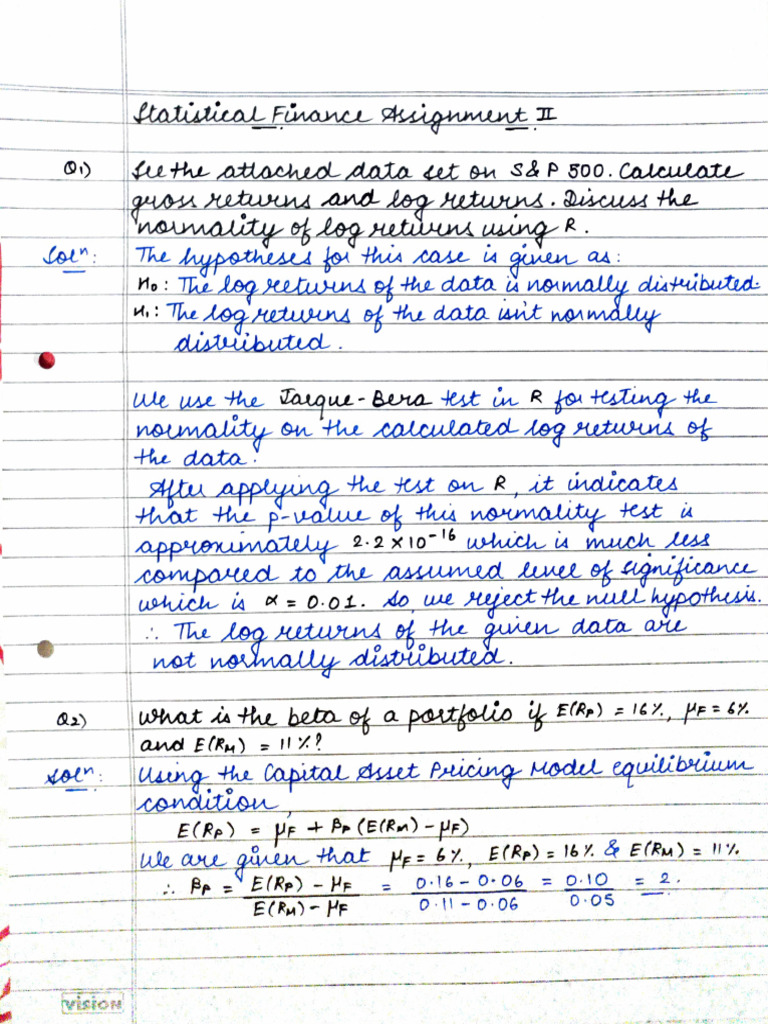 Statistical Finance Assignment II
Q1) See the attached data set on S&P 500. Calculate
gross returns and log returns. Discuss the
normality of log returns using R.
Solⁿ: The hypotheses for this case is given as:
H₀: The log returns of the data is normally distributed.
H₁: The log returns of the data isn't normally
distributed.
We use the Jarque-Bera test in R for testing the
normality on the calculated log returns of
the data.
After applying the test on R, it indicates
that the p-value of this normality test is
approximately 2.2×10⁻¹⁶ which is much less
compared to the assumed level of significance
which is α = 0.01. So, we reject the null hypothesis.
∴ The log returns of the given data are
not normally distributed.
Q2) What is the beta of a portfolio if E(Rₚ) = 16%, μF = 6%
and E(RM) = 11%?
Solⁿ: Using the Capital Asset Pricing Model equilibrium
condition,
E(Rₚ) = μF + βₚ (E(RM) - μF)
We are given that μF = 6%, E(Rₚ) = 16% & E(RM) = 11%
∴ βₚ = E(Rₚ) - μF / E(RM) - μF = 0.16 - 0.06 / 0.11 - 0.06 = 0.10 / 0.05 = 2.
vision